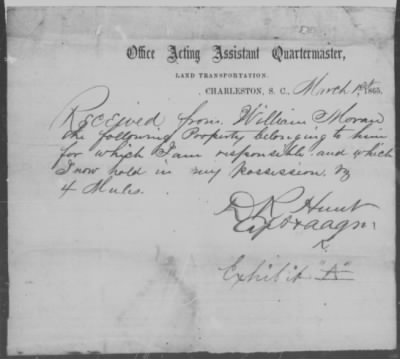 Office Acting Assistant Quartermaster,
LAND TRANSPORTATION.
CHARLESTON, S. C., March 1st 1865.
Received from William Moran
the following Property belonging to him
for which I am responsible and which
I now hold in my Possession. viz
4 Mules.
D R Hunt
Capt & aaqm
Exhibit "A"